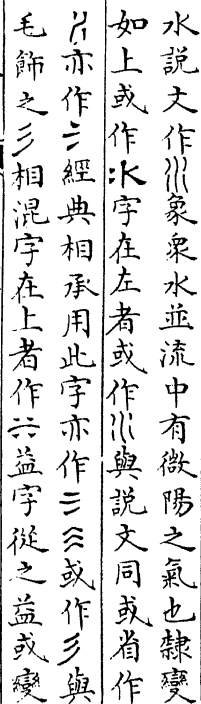 水說文作象衆水並流中有微陽之氣也隸變
如上或作氺字在左者或作與說文同或省作
亦作二經典相承用此字亦作三或作彡與
毛飾之彡相混字在上者作益字從之益或變